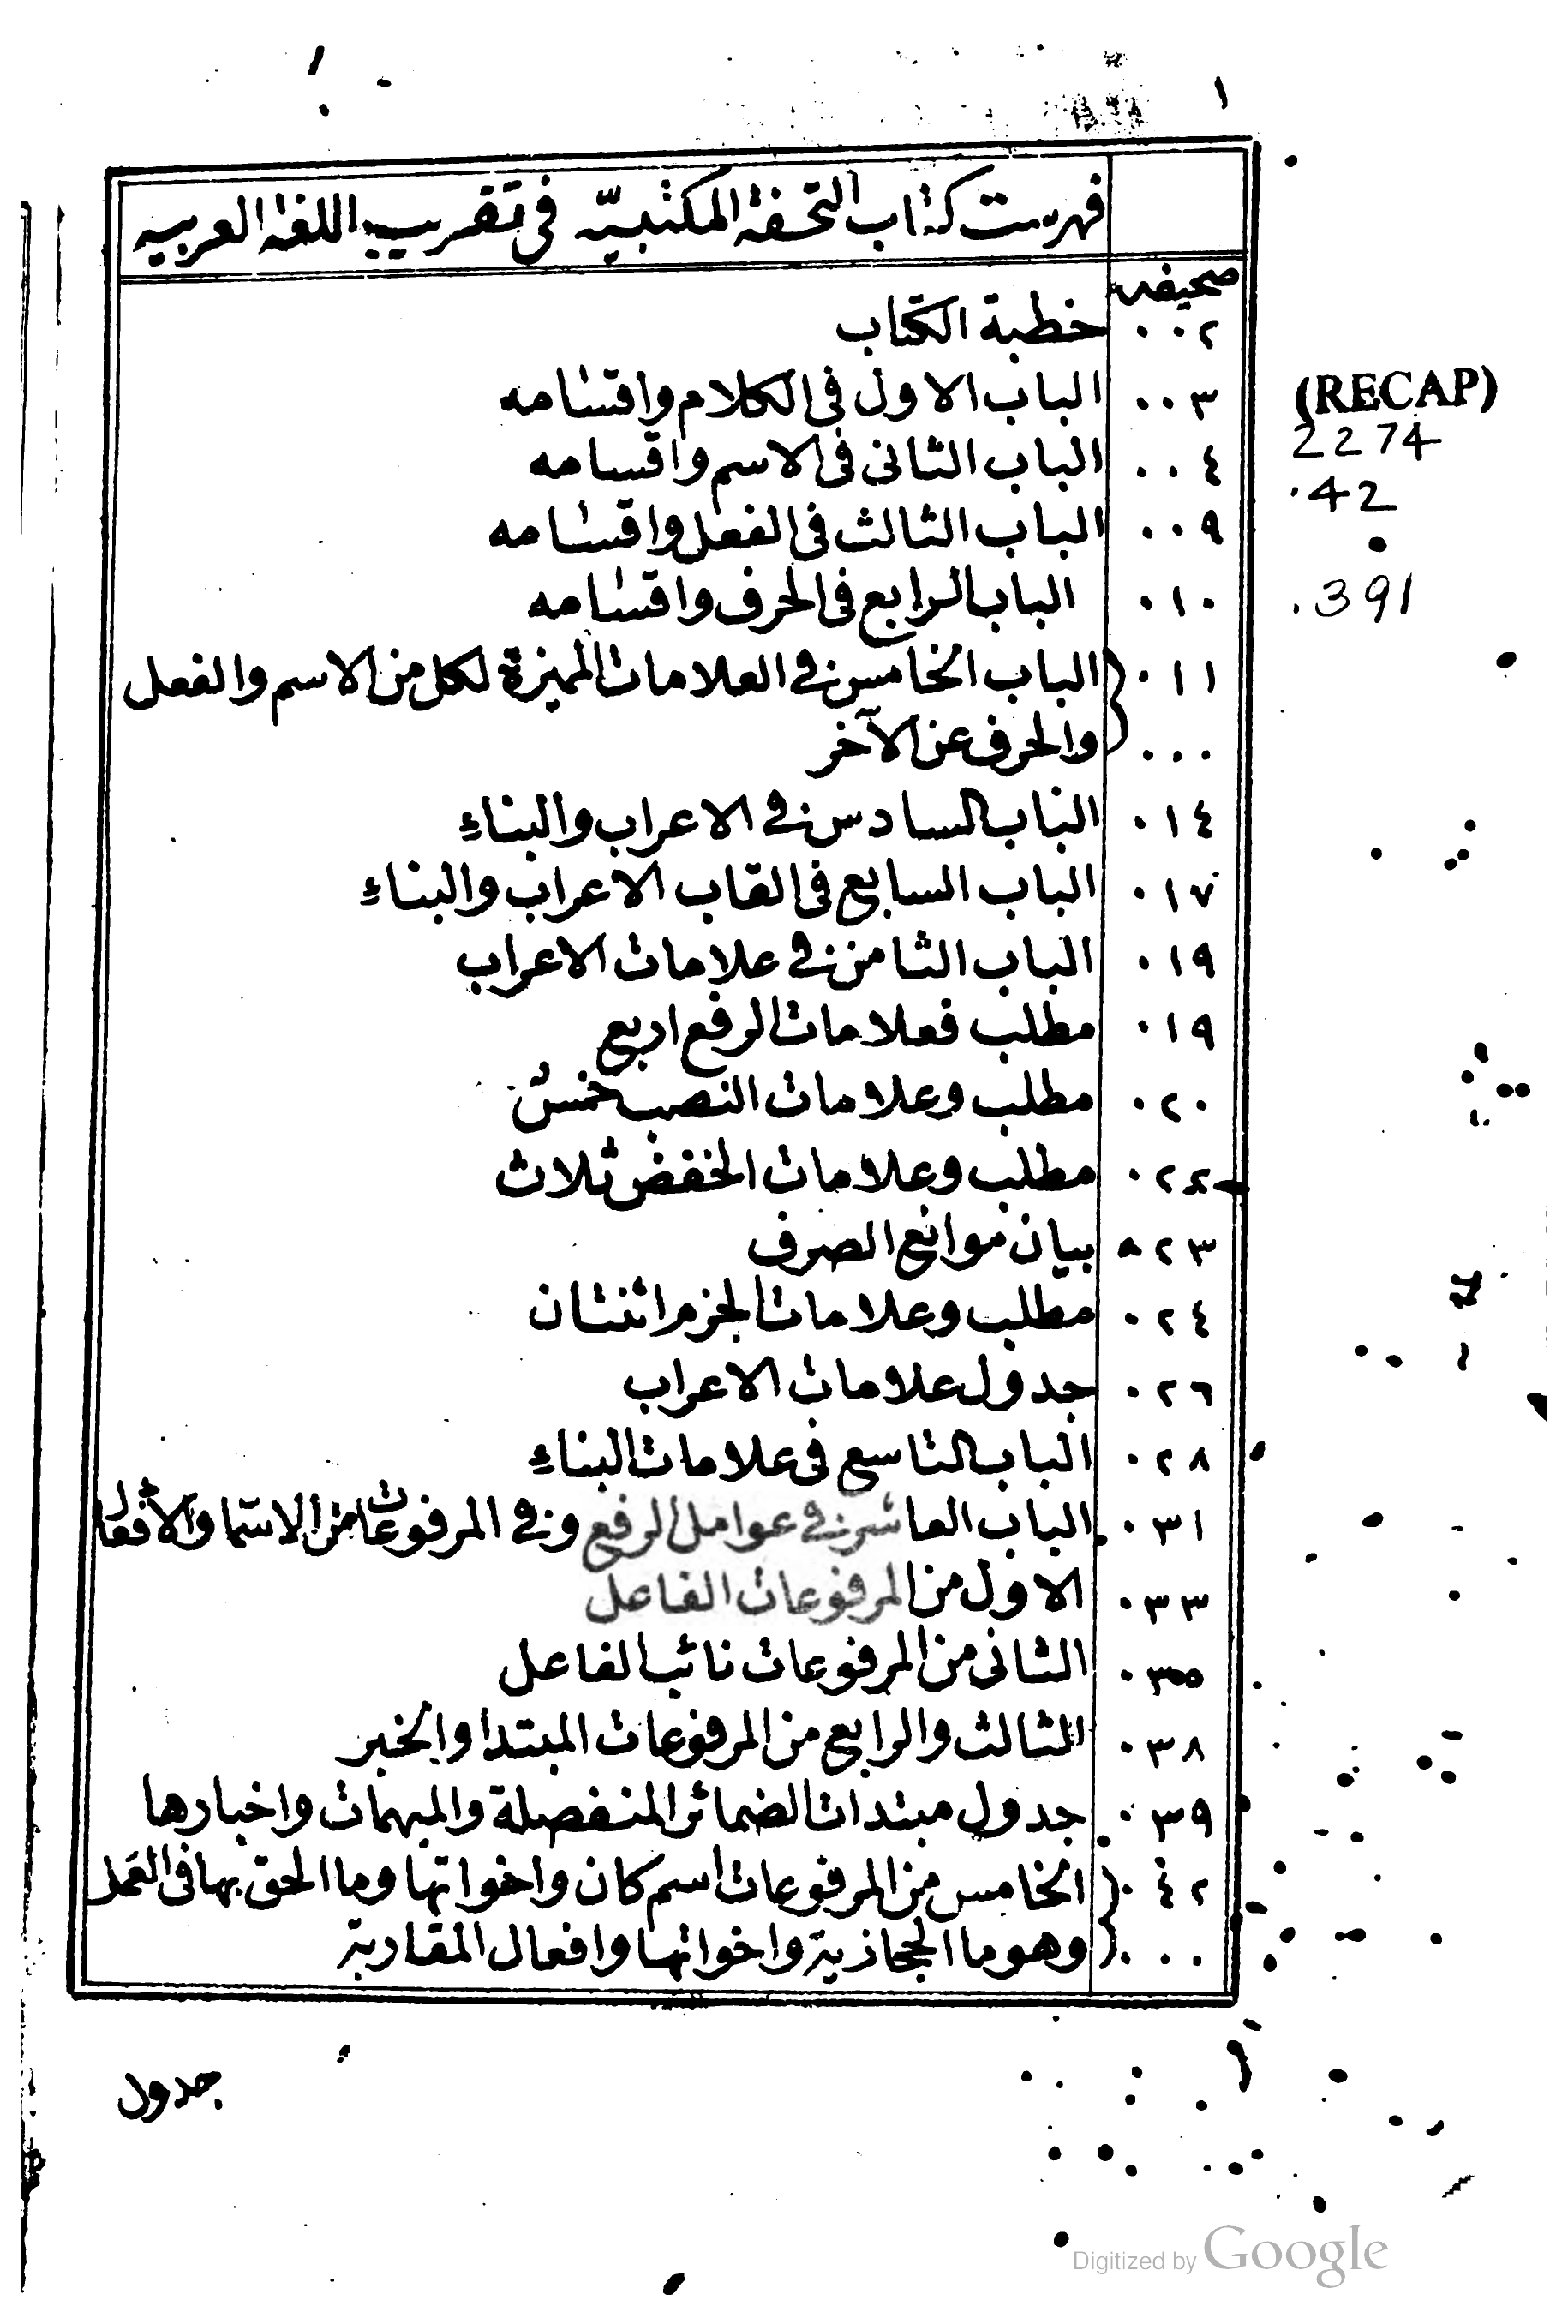 ١
فهرست كتاب التحفة المكتبيّه في تقريب اللغة العربيه
صحيفه
٠٠٢ خطبة الكتاب
٠٠٣ الباب الاول في الكلام واقسامه
٠٠٤ الباب الثاني في الاسم واقسامه
٠٠٩ الباب الثالث في الفعل واقسامه
٠١٠ الباب الرابع في الحرف واقسامه
٠١١ الباب الخامس في العلامات المميزة لكل من الاسم والفعل
٠٠٠ والحرف عن الآخر
٠١٤ الباب السادس في الاعراب والبناء
٠١٧ الباب السابع في القاب الاعراب والبناء
٠١٩ الباب الثامن في علامات الاعراب
٠١٩ مطلب فعلامات الرفع اربع
٠٢٠ مطلب وعلامات النصب خمس
٠٢٢ مطلب وعلامات الخفض ثلاث
٠٢٣ بيان موانع الصرف
٠٢٤ مطلب وعلامات الجزم اثنتان
٠٢٦ جدول علامات الاعراب
٠٢٨ الباب التاسع في علامات البناء
٠٣١ الباب العاشر في عوامل الرفع وفي المرفوعات من الاسما والافعال
٠٣٣ الاول من المرفوعات الفاعل
٠٣٥ الثاني من المرفوعات نائب الفاعل
٠٣٨ الثالث والرابع من المرفوعات المبتدا والخبر
٠٣٩ جدول مبتدات الضمائر المنفصلة والمبهمات واخبارها
٠٤٢ الخامس من المرفوعات اسم كان واخواتها وما الحق بها في العمل
٠٠٠ وهو ما الحجازية واخواتها وافعال المقاربة
جدول
(RECAP)
2274
.42
.391
Digitized by Google